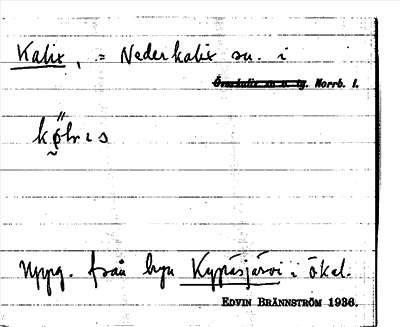 Kalix, = Nederkalix sn. i
Överkalix sn o tg. Norrb. l.
Uppg. från byn Kypäsjärvi i Ökal.
EDVIN BRÄNNSTRÖM 1936.